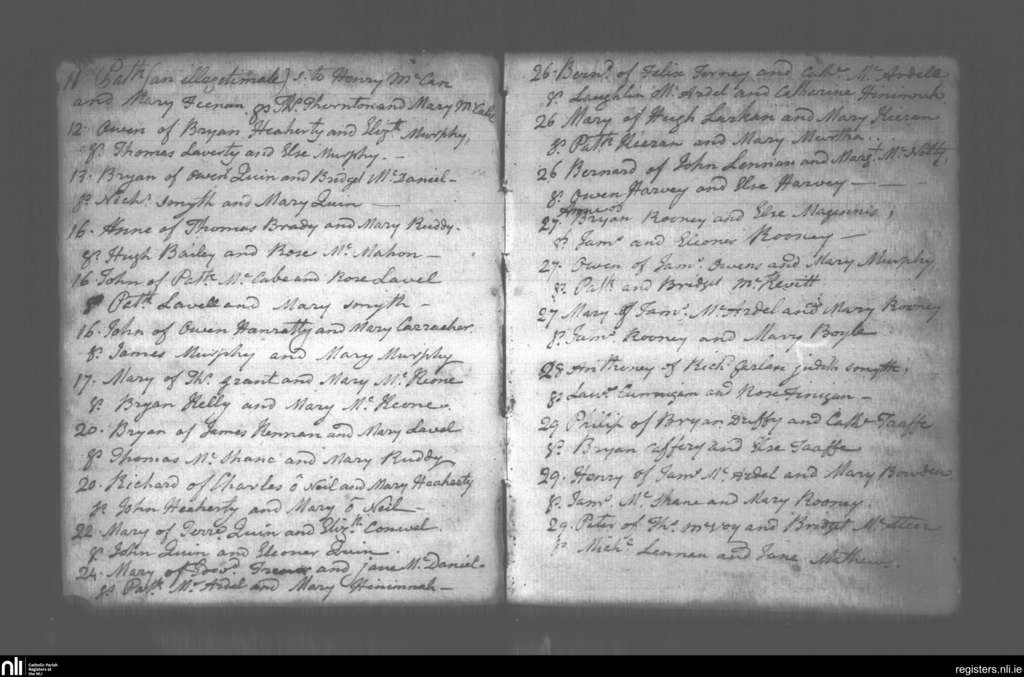 11 Patk (an illegetimate) s. to Henry McCan
and Mary Heenan gps Ths. Thornton and Mary McCabe
12. Owen of Bryan Heaherty and Elizth Murphy,
gps. Thomas Laverty and Else Murphy. -
13. Bryan of Owen Quin and Bridget McDaniel -
gps Nichs. Smyth and Mary Quin —
16. Anne of Thomas Brady and Mary Ruddy.
gps. Hugh Bailey and Rose McMahon —
16 John of Patk. McCabe and Rose Lavel
gps Patk Lavell and Mary Smyth -
16. John of Owen Hanratty and Mary Carracher
gps. James Murphy and Mary Murphy
17. Mary of Ths. grant and Mary McKeone
gps. Bryan Kelly and Mary McKeone.
20. Bryan of James Kennan and Mary Lavel
gps Thomas McShane and Mary Ruddy
20. Richard of Charles ô Neil and Mary Heaherty
gps. John Heaherty and Mary ô Neil —
22 Mary of Terre. Quin and Elizth. Conwel.
gps. John Quin and Eleoner Quin.
24. Mary of Edwd. and jane McDaniel.
gps Patk. McArdel and Mary Hinimnah —
26. Bernd. of Felix Torney and Cathe. McArdell
gps. Laughlin McArdel and Catharine Hinimnah
26 Mary of Hugh Larkan and Mary Keeran
gps. Patk Keeran and Mary Murtha..
26 Bernard of John Lennan and Margt. McNally,
gps. Owen Harvey and Else Harvey — — —
Anne of
27. Bryan Rooney and Else Magennis;
gps. Jams. and Eleoner Rooney —
27. Owen of Jams. Owens and Mary Murphy
gps. Patk and Bridget McKevitt
27 Mary of Jams. McArdel and Mary Rooney
gps. Jams. Rooney and Mary Boyle
28 Anthoney of Richd. Garlan judith Smyth;
gps Lawe. Cunnigan and Rose Finigan —
29 Philip of Bryan Duffy and Cathe Taaffe
gps. Bryan Caffery and Else Taaffe
29. Henry of Jams. McArdel and Mary Bowden
gps. Jams. McShane and Mary Rooney.
29. Peter of Ths. McVoy and Bridget McAteer
gps Michl. Lennan and Jane Mathews.
nli
Catholic Parish
Registers at
the NLI
registers.nli.ie